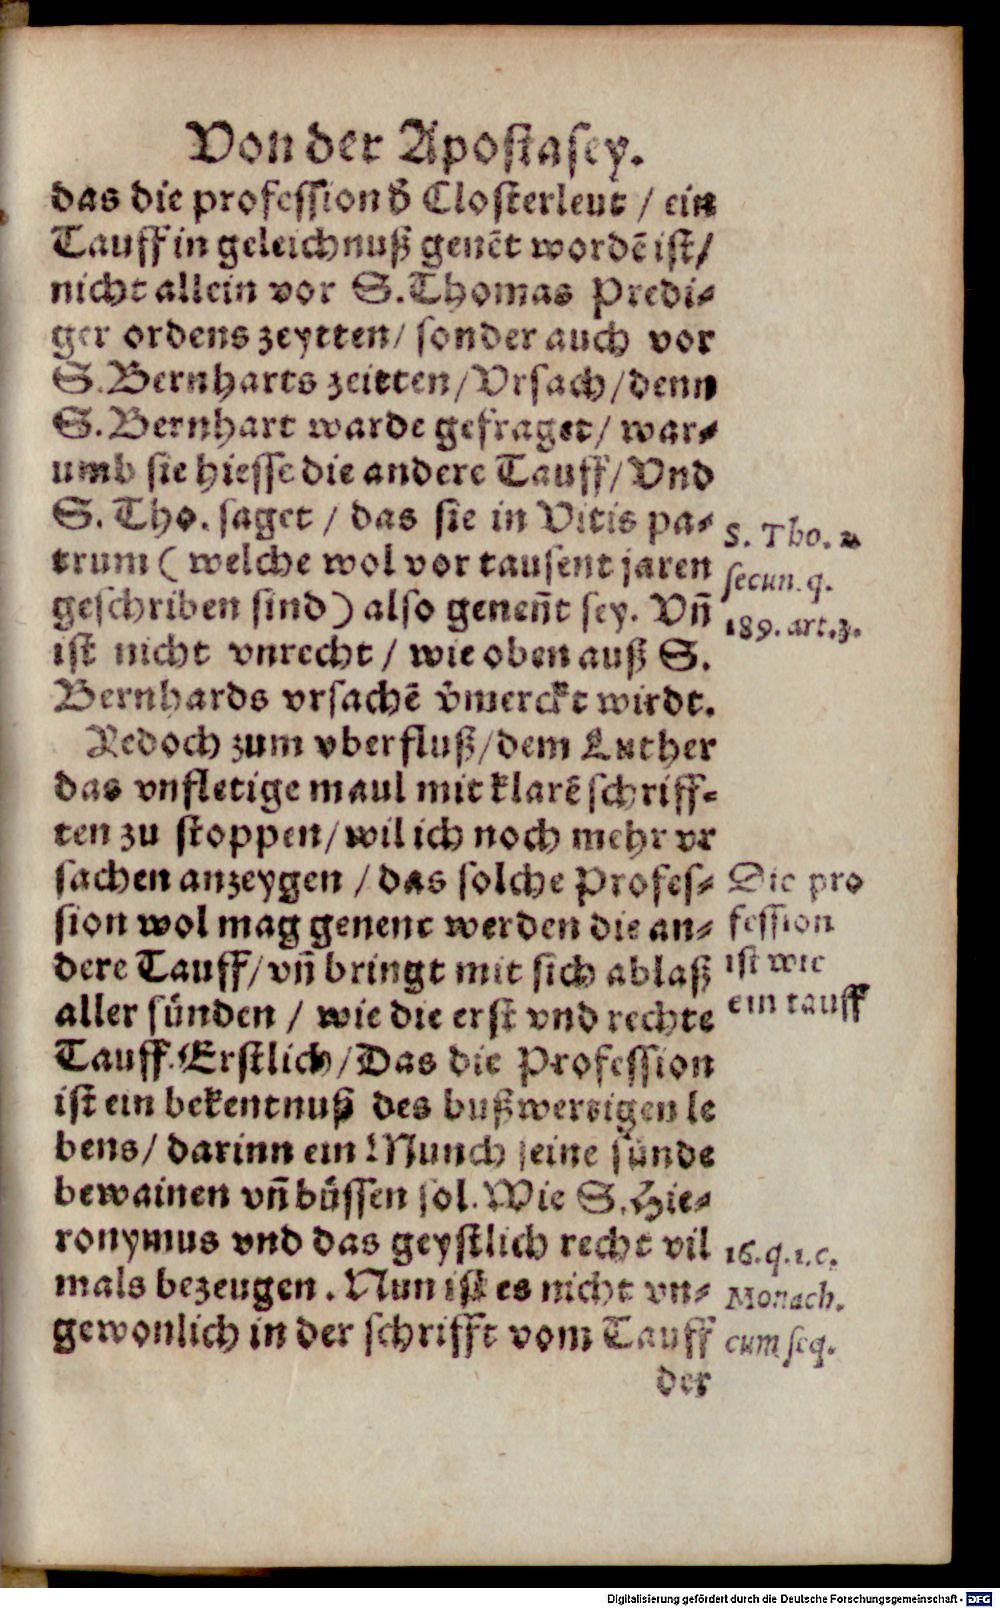 Von der Apostasey.
das die profession đ Closterleut / ein
Tauff in geleichnuß genēt wordē ist/
nicht allein vor S. Thomas Predi⸗
ger ordens zeytten/ sonder auch vor
S. Bernharts zeitten/Vrsach/denn
S. Bernhart warde gefraget/ war⸗
umb sie hiesse die andere Tauff/Vnd
S. Tho. saget / das sie in Vitis pa⸗
trum ( welche wol vor tausent jaren
geschriben sind) also geneñt sey. Vñ
ist nicht vnrecht / wie oben auß S.
Bernhards vrsachē v̄merckt wirdt.
S. Tho. 2.
secun. q.
189. art. 3.
Jedoch zum vberfluß/dem Luther
das vnfletige maul mit klarē schriff⸗
ten zu stoppen/wil ich noch mehr vr
sachen anzeygen / das solche Profes⸗
sion wol mag genent werden die an⸗
dere Tauff/vñ bringt mit sich ablaß
aller sünden / wie die erst vnd rechte
Tauff. Erstlich/Das die Profession
ist ein bekentnuß des bußwertigen le
bens/ darinn ein Munch seine sünde
bewainen vñ büssen sol. Wie S. Hie⸗
ronymus vnd das geystlich recht vil
mals bezeugen. Nun ist es nicht vn⸗
gewonlich in der schrifft vom Tauff
Die pro
fession
ist wie
ein tauff
16. q. 1. c.
Monach.
cum seq.
der
Digitalisierung gefördert durch die Deutsche Forschungsgemeinschaft - DFG